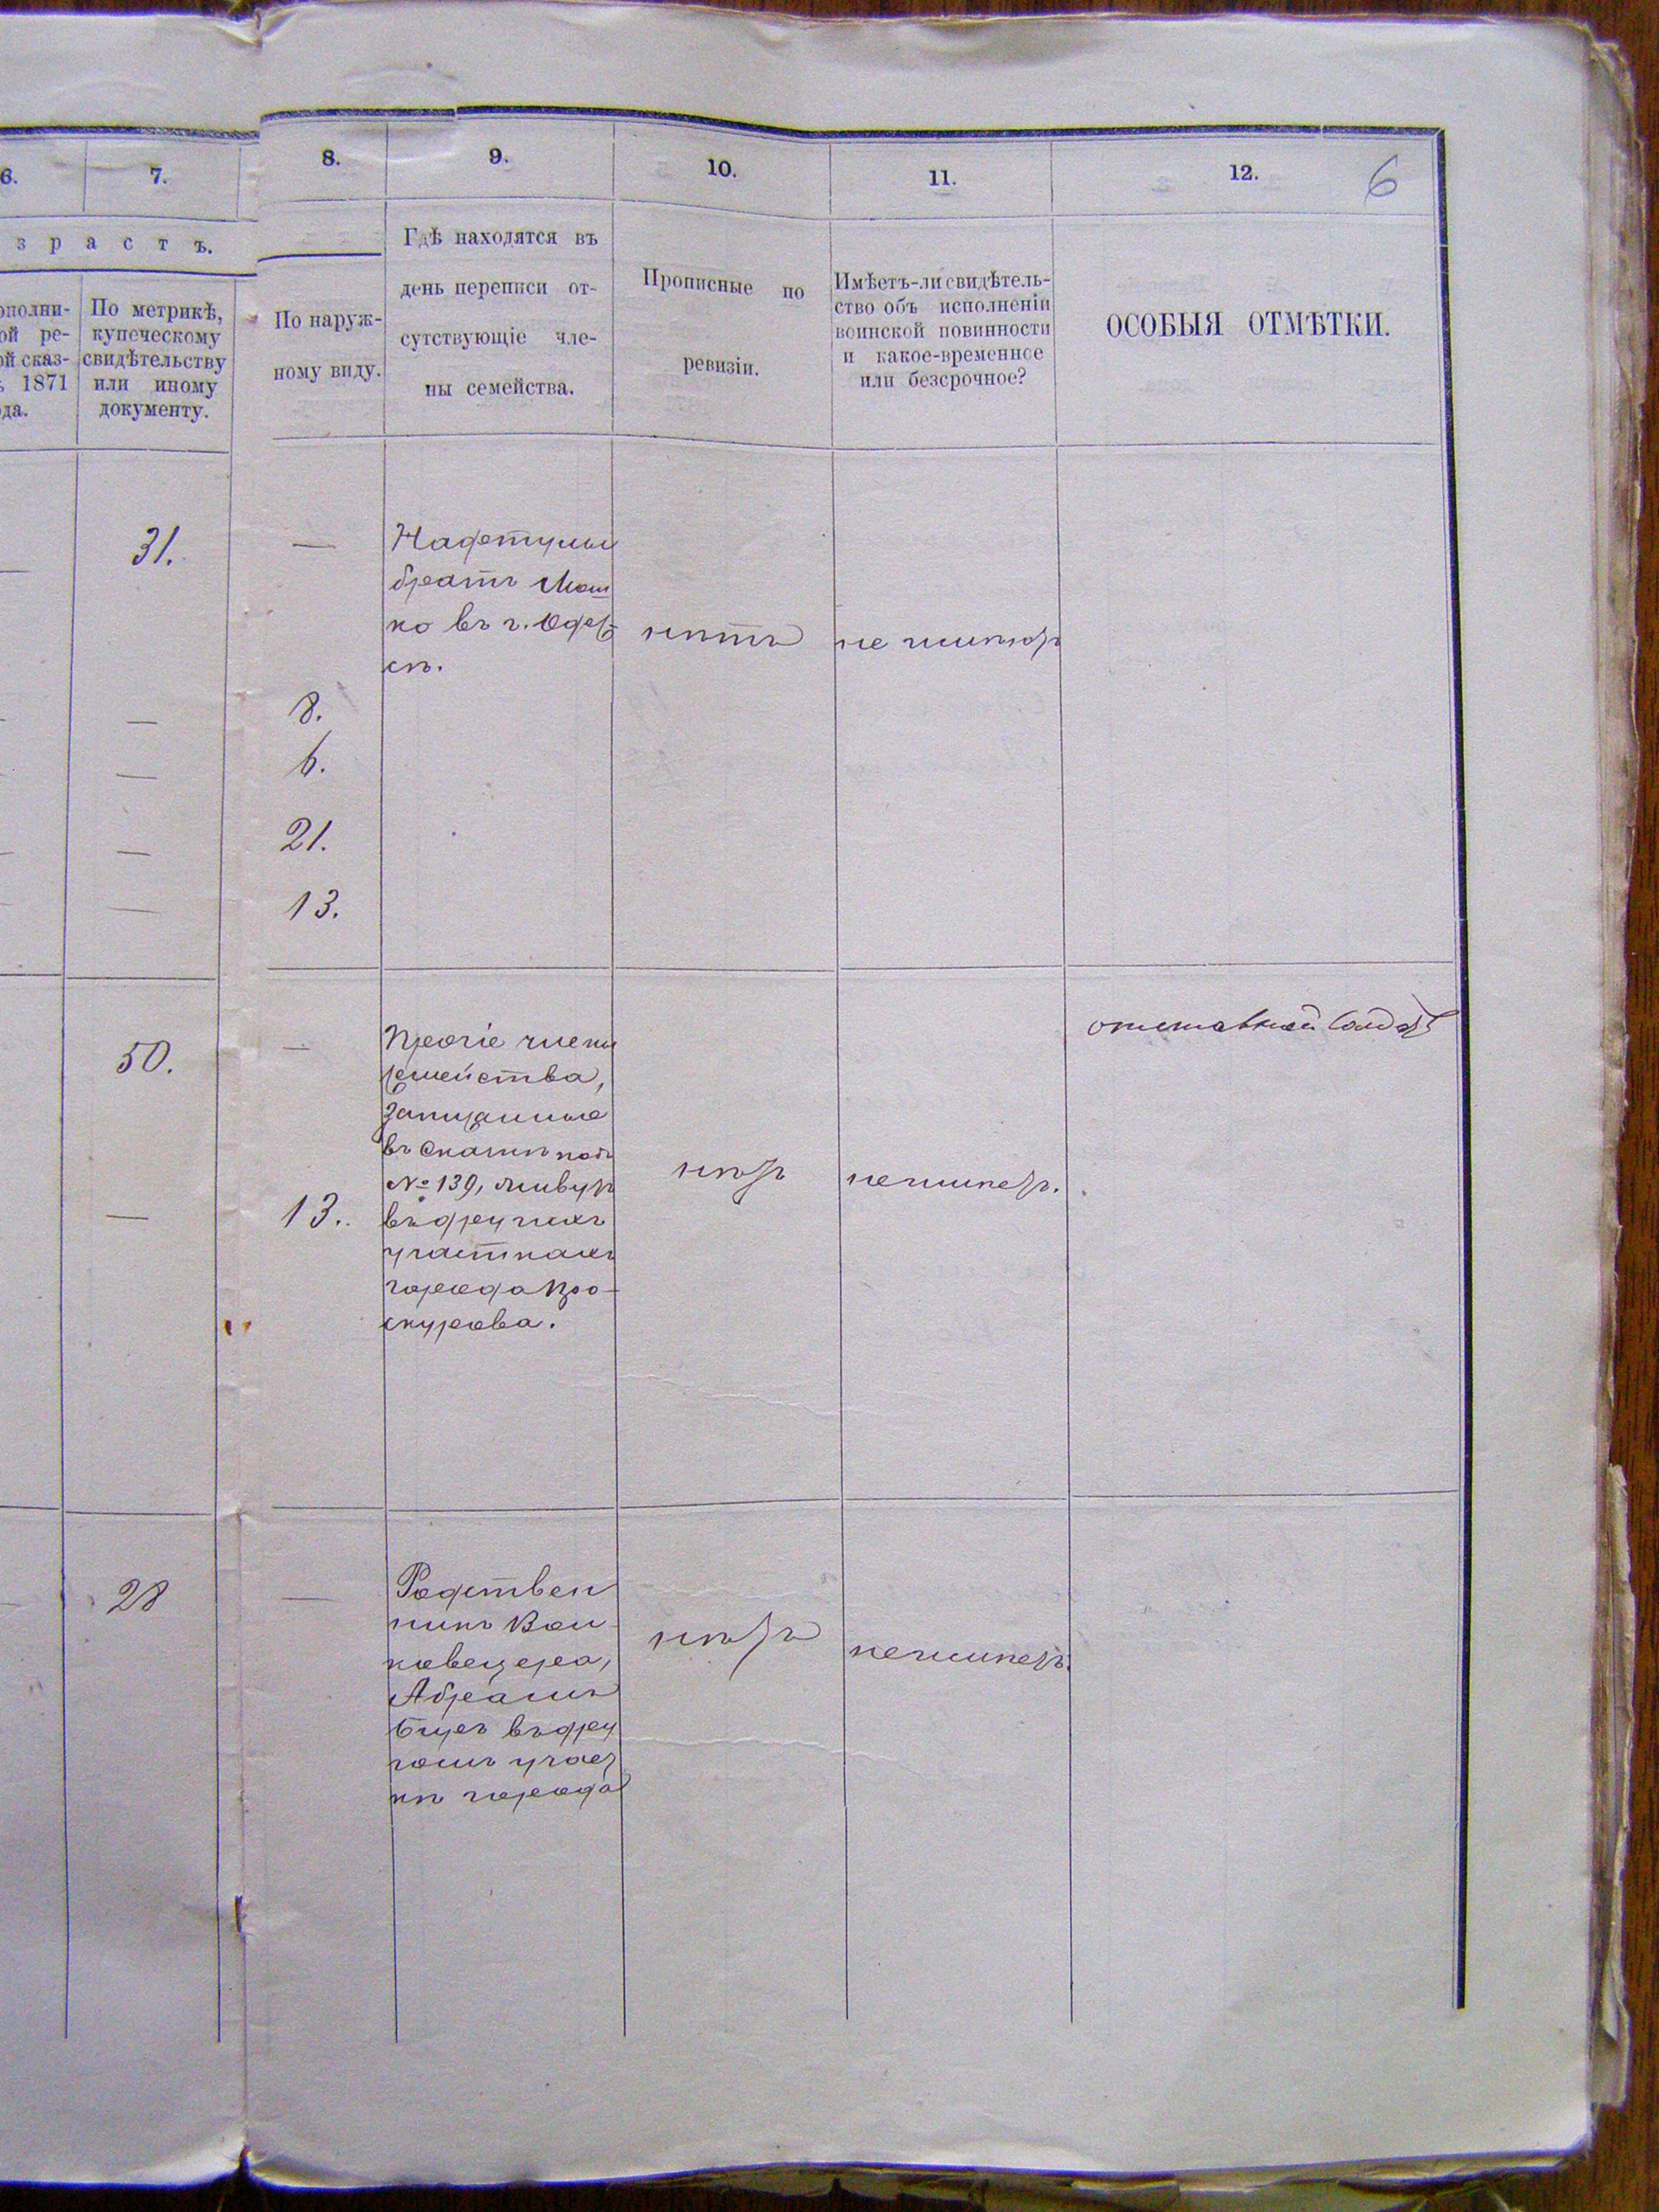 6.
7.
8.
9.
10.
11.
12.
6
зрастъ.
ополни-
ой ре-
ой сказ-
ѣ 1871
ода.
По метрикѣ,
купеческому
свидѣтельству
или иному
документу.
По наруж-
ному виду.
Гдѣ находятся въ
день переписи от-
сутствующіе чле-
ны семейства.
Прописные по
ревизіи.
Имѣетъ-ли свидѣтель-
ство объ исполненіи
воинской повинности
и какое-временное
или безсрочное?
ОСОБЫЯ ОТМѢТКИ.
31.
—
Нафтулы
братъ Мош
ко въ г. Одес
сѣ.
нѣтъ
не имѣютъ
—
8.
—
6.
—
21.
—
13.
50.
—
Прочіе члены
семейства,
записанные
въ скаскѣ подъ
№ 139, живутъ
въ другихъ
участкахъ
города Про-
скурова.
нѣтъ
не имѣетъ.
отставной солдатъ
—
13.
28
—
Родствен
никъ Вои
ковецера,
Абрамъ
Бицъ въ дру
гомъ участ
кѣ города
нѣтъ
не имѣетъ.